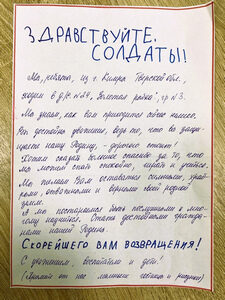 ЗДРАВСТВУЙТЕ,
СОЛДАТЫ!
Мы, ребята, из г. Кимры Тверской обл.,
ходим в д/с №24, "Золотая рыбка", гр №3.
Мы знаем, как вам приходится сейчас нелегко.
Вы достойны уважения, ведь то, что вы защи-
щаете нашу Родину, - дорогого стоит!
Хотим сказать большое спасибо за то, что
мы можем спать спокойно, играть и учиться.
Мы желаем Вам оставаться сильными, храб-
рыми, отважными и верными своей родной
земле.
А мы постараемся быть послушными и мно-
гому научиться. Стать достойными гражда-
нами нашей Родины.
СКОРЕЙШЕГО ВАМ ВОЗВРАЩЕНИЯ!
С уважением, воспитатели и дети!
(Примите от нас маленькие и рисунки)